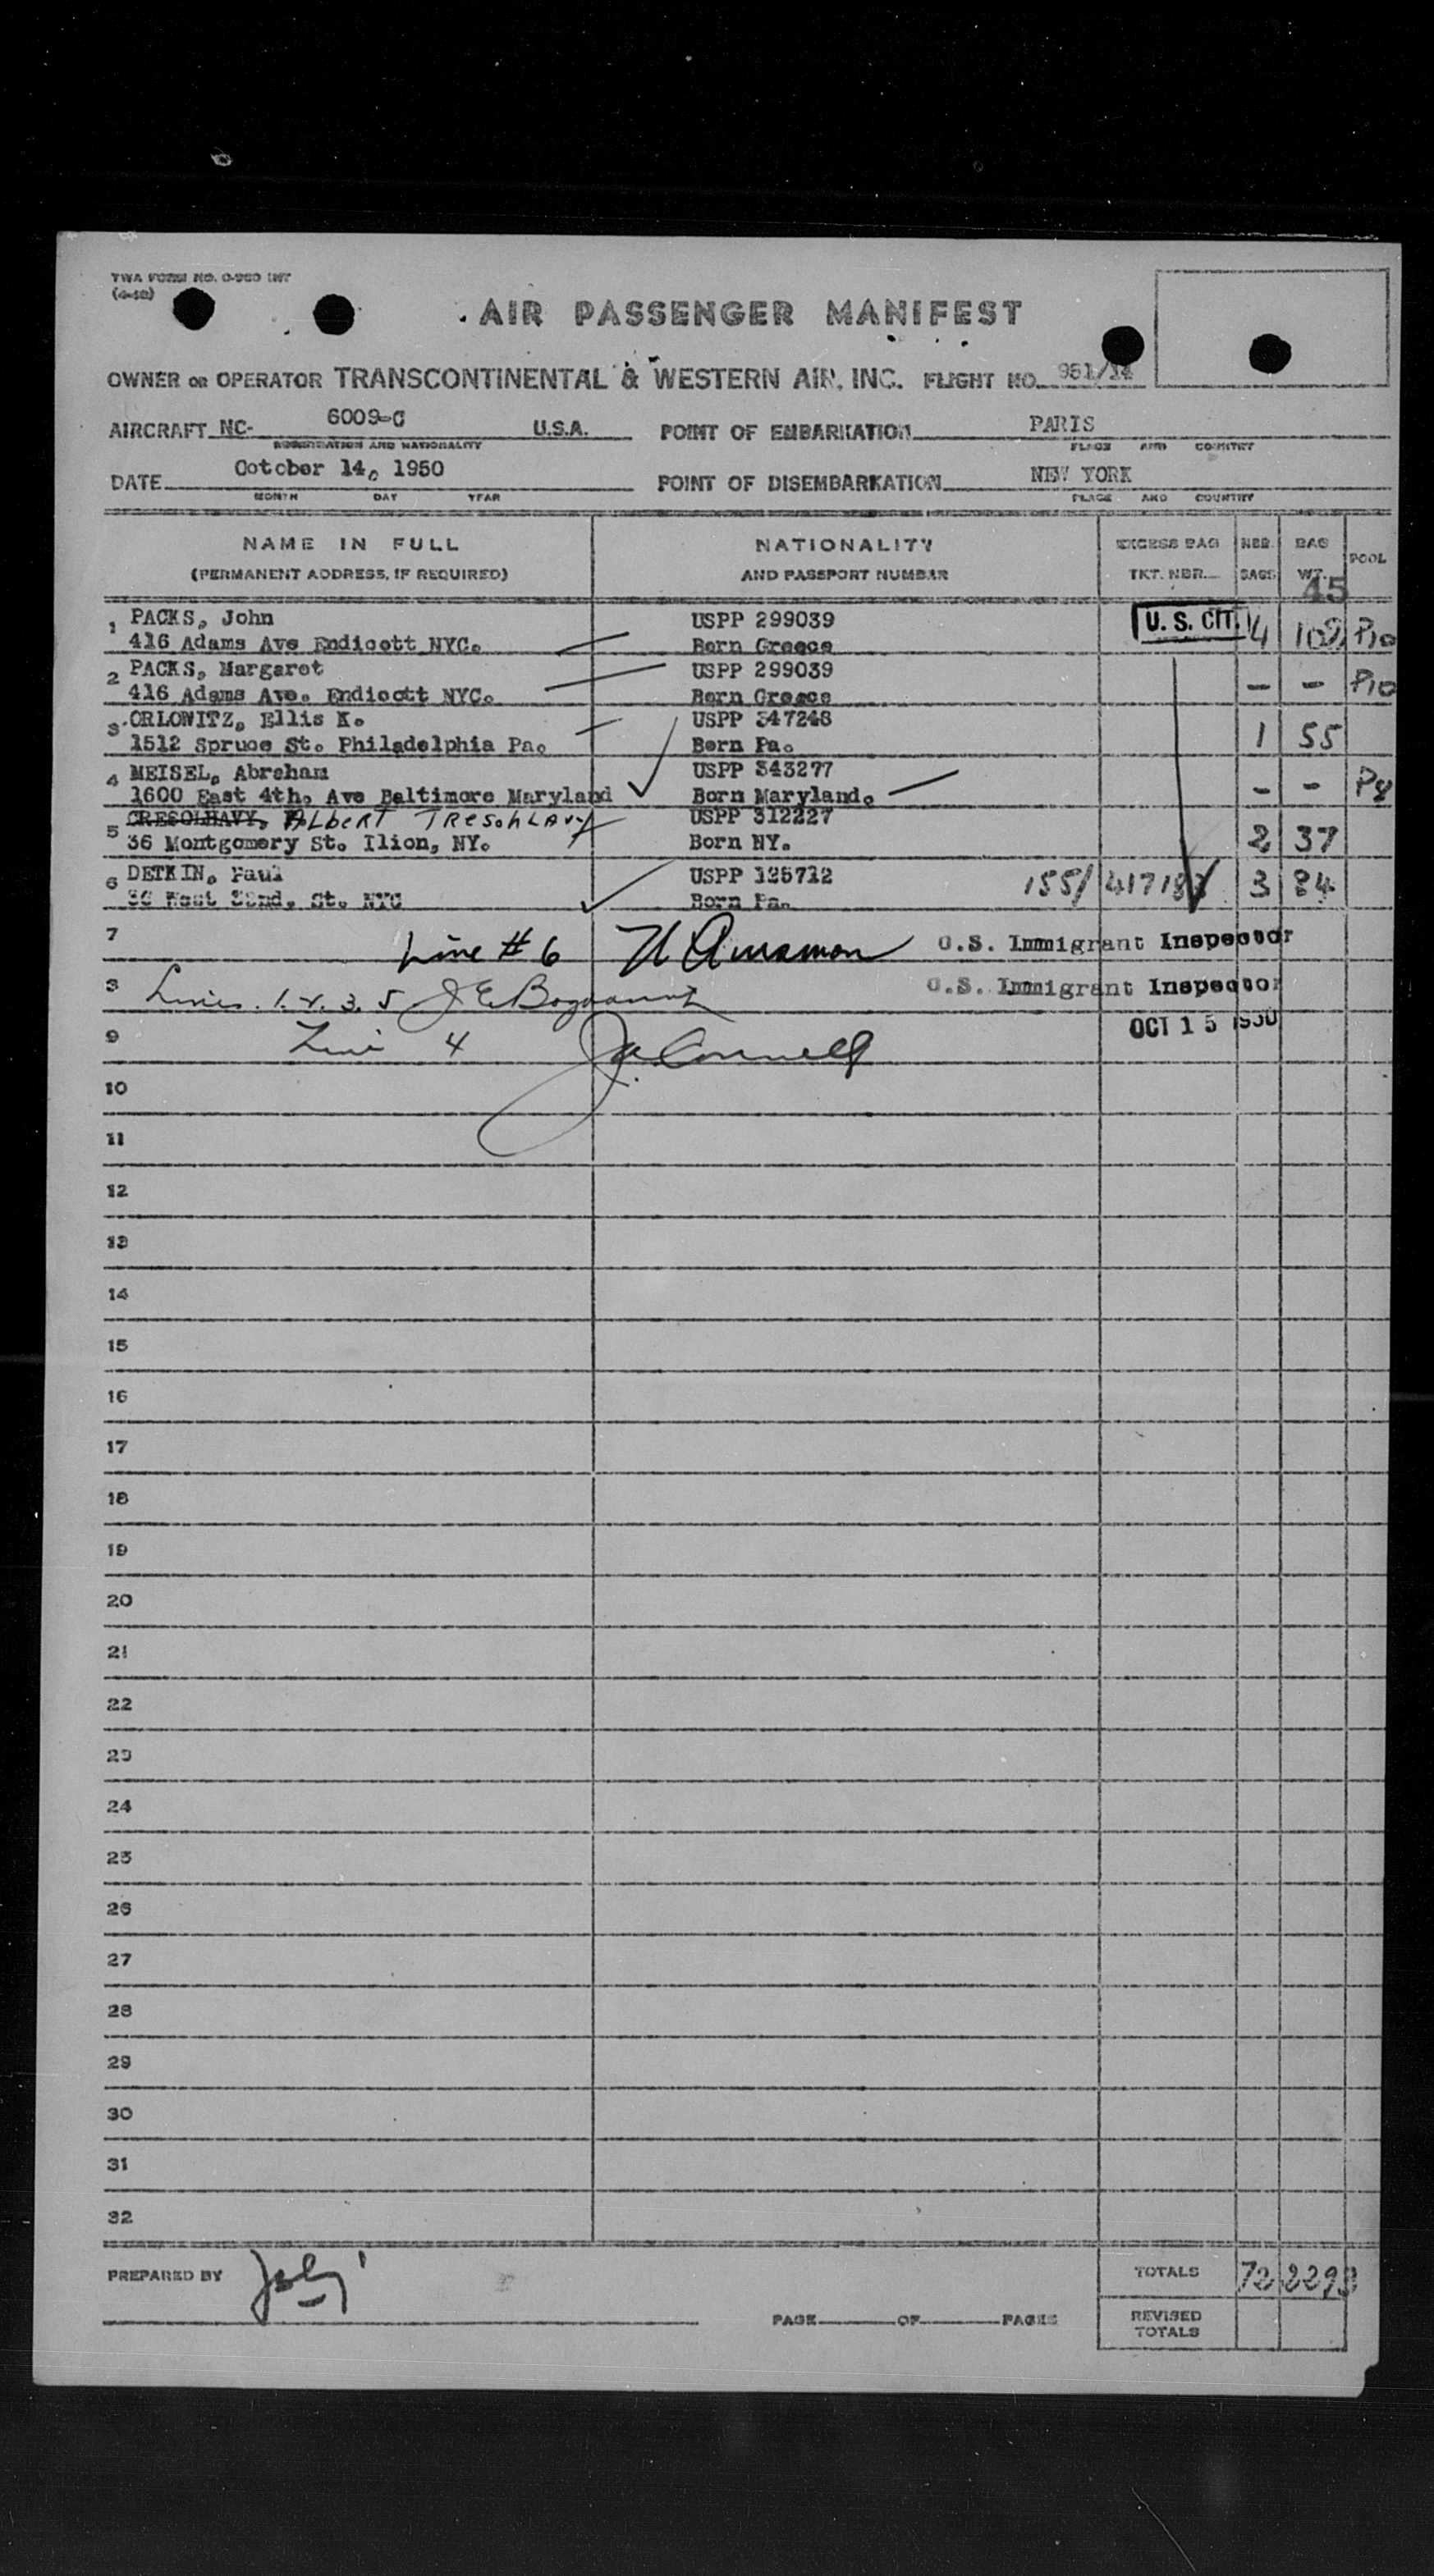 TWA FORM NO. O-980 INT
(4-48)
AIR PASSENGER MANIFEST
OWNER OR OPERATOR TRANSCONTINENTAL & WESTERN AIR, INC. FLIGHT NO. 951/14
AIRCRAFT NC- 6009-C U.S.A. POINT OF EMBARKATION PARIS
REGISTRATION AND NATIONALITY PLACE AND COUNTRY
DATE October 14, 1950 POINT OF DISEMBARKATION NEW YORK
MONTH DAY YEAR PLACE AND COUNTRY
NAME IN FULL NATIONALITY EXCESS BAG NBR. BAG POOL
(PERMANENT ADDRESS, IF REQUIRED) AND PASSPORT NUMBER TKT. NBR. BAGS WT. 45
1 PACKS, John USPP 299039 U. S. CIT. 4 109 P10
416 Adams Ave Endicott NYC. Born Greece
2 PACKS, Margaret USPP 299039
416 Adams Ave. Endicott NYC. Born Greece - - P10
3 ORLOWITZ, Ellis K. USPP 347248
1512 Spruce St. Philadelphia Pa. Born Pa. 1 55
4 MEISEL, Abraham USPP 343277
1600 East 4th, Ave Baltimore Maryland Born Maryland. - - P8
5 CRESOLHAVY, ALBERT TRESOHLAVY USPP 312227
36 Montgomery St. Ilion, NY. Born NY. 2 37
6 DETKIN, Paul USPP 125712 155/ 3 84
West St. NYC Born Pa.
7 Line # 6 U.S. Immigrant Inspector
8 Lines. 1. 2. 3. 5 U.S. Immigrant Inspector
9 Line 4 OCT 15 1950
10
11
12
13
14
15
16
17
18
19
20
21
22
23
24
25
26
27
28
29
30
31
32
PREPARED BY TOTALS 72 2293
PAGE OF PAGES REVISED
TOTALS